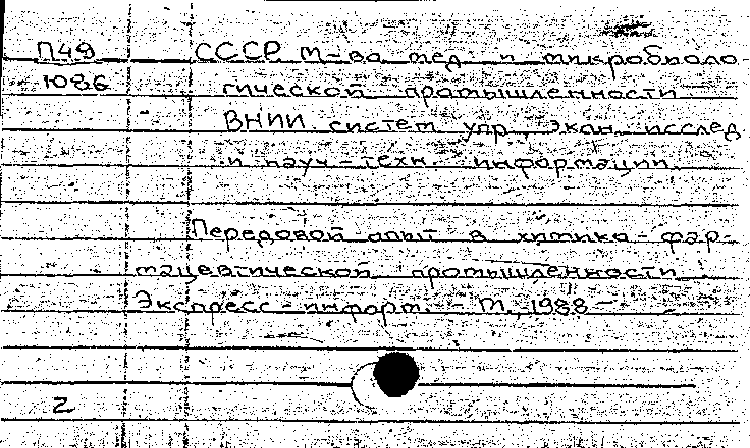 П49 СССР М-во мед. и микробиоло-
1086 гической промышленности.
ВНИИ систем упр., экон. исслед.
и науч-техн. информации.
Передовой опыт в химико-фар-
мацевтической промышленности.
Экспресс-информ. - М., 1988 -
2